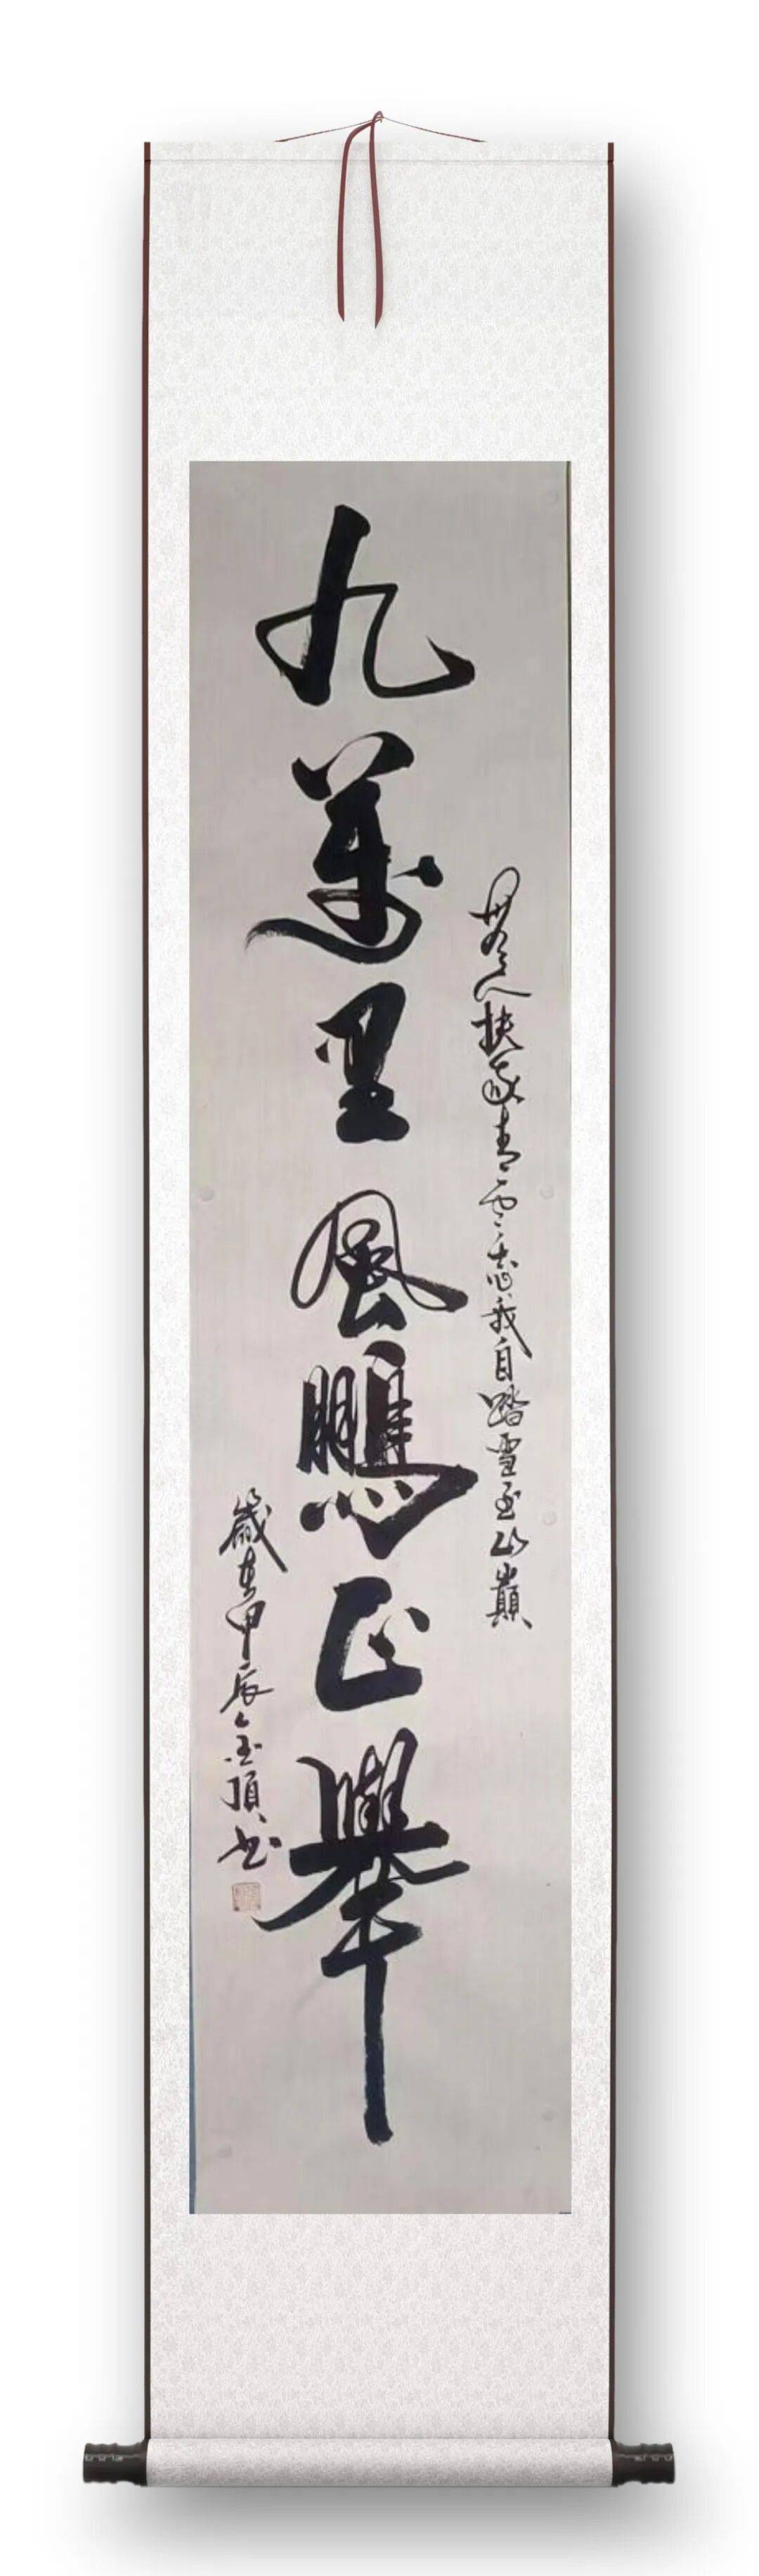 世無人扶我青雲志我自踏雪至山巔
九萬里風鵬正舉
歲在甲辰金頂書